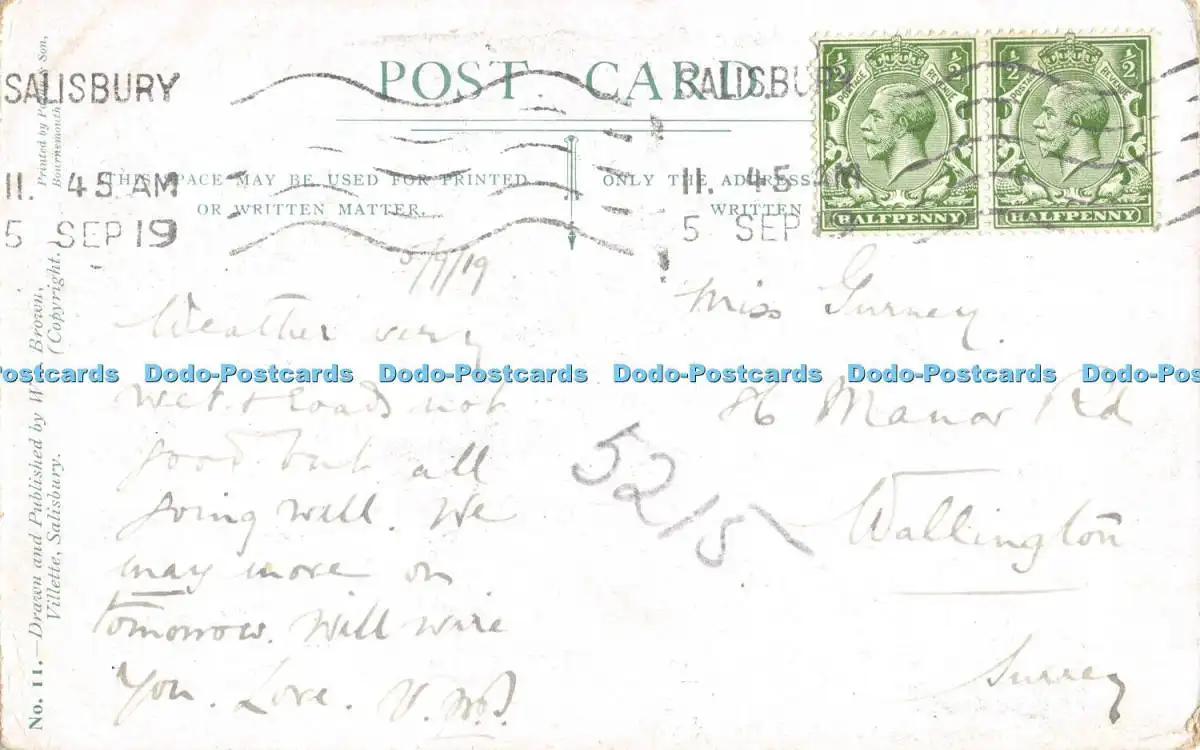 POST CARD.
SALISBURY
11. 45 AM
5 SEP 19
SALISBURY
11. 45 AM
5 SEP 19
½ ½
POSTAGE REVENUE
HALFPENNY
½ ½
POSTAGE REVENUE
HALFPENNY
THIS SPACE MAY BE USED FOR PRINTED
OR WRITTEN MATTER.
ONLY THE ADDRESS
WRITTEN
5/9/19
Weather very
wet & roads not
good but all
going well. We
may move on
tomorrow. Will wire
you. Love.
Miss Gurney.
86 Manor Rd
Wallington
Surrey
5215
No. 11.—Drawn and Published by W. Brown,
Villette, Salisbury. (Copyright.)
Printed by Son,
Bournemouth
Dodo-Postcards Dodo-Postcards Dodo-Postcards Dodo-Postcards Dodo-Postcards